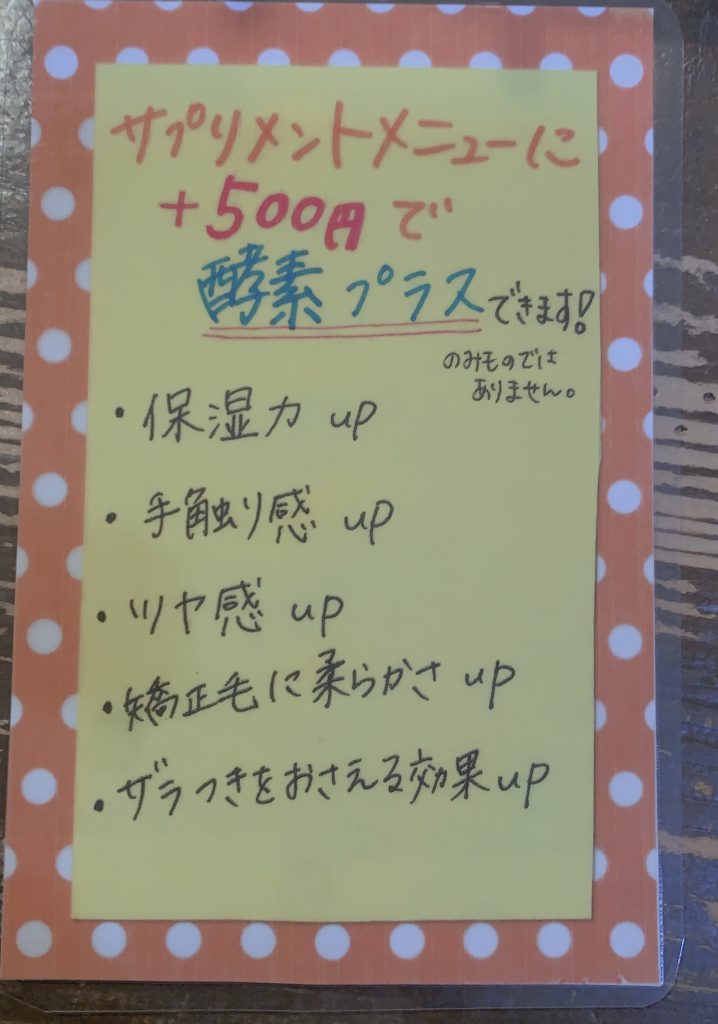 サプリメントメニューに
+500円で
酵素プラスできます!
のみものでは
ありません。
・保湿力 up
・手触り感 up
・ツヤ感 up
・矯正毛に柔らかさ up
・ザラつきをおさえる効果up